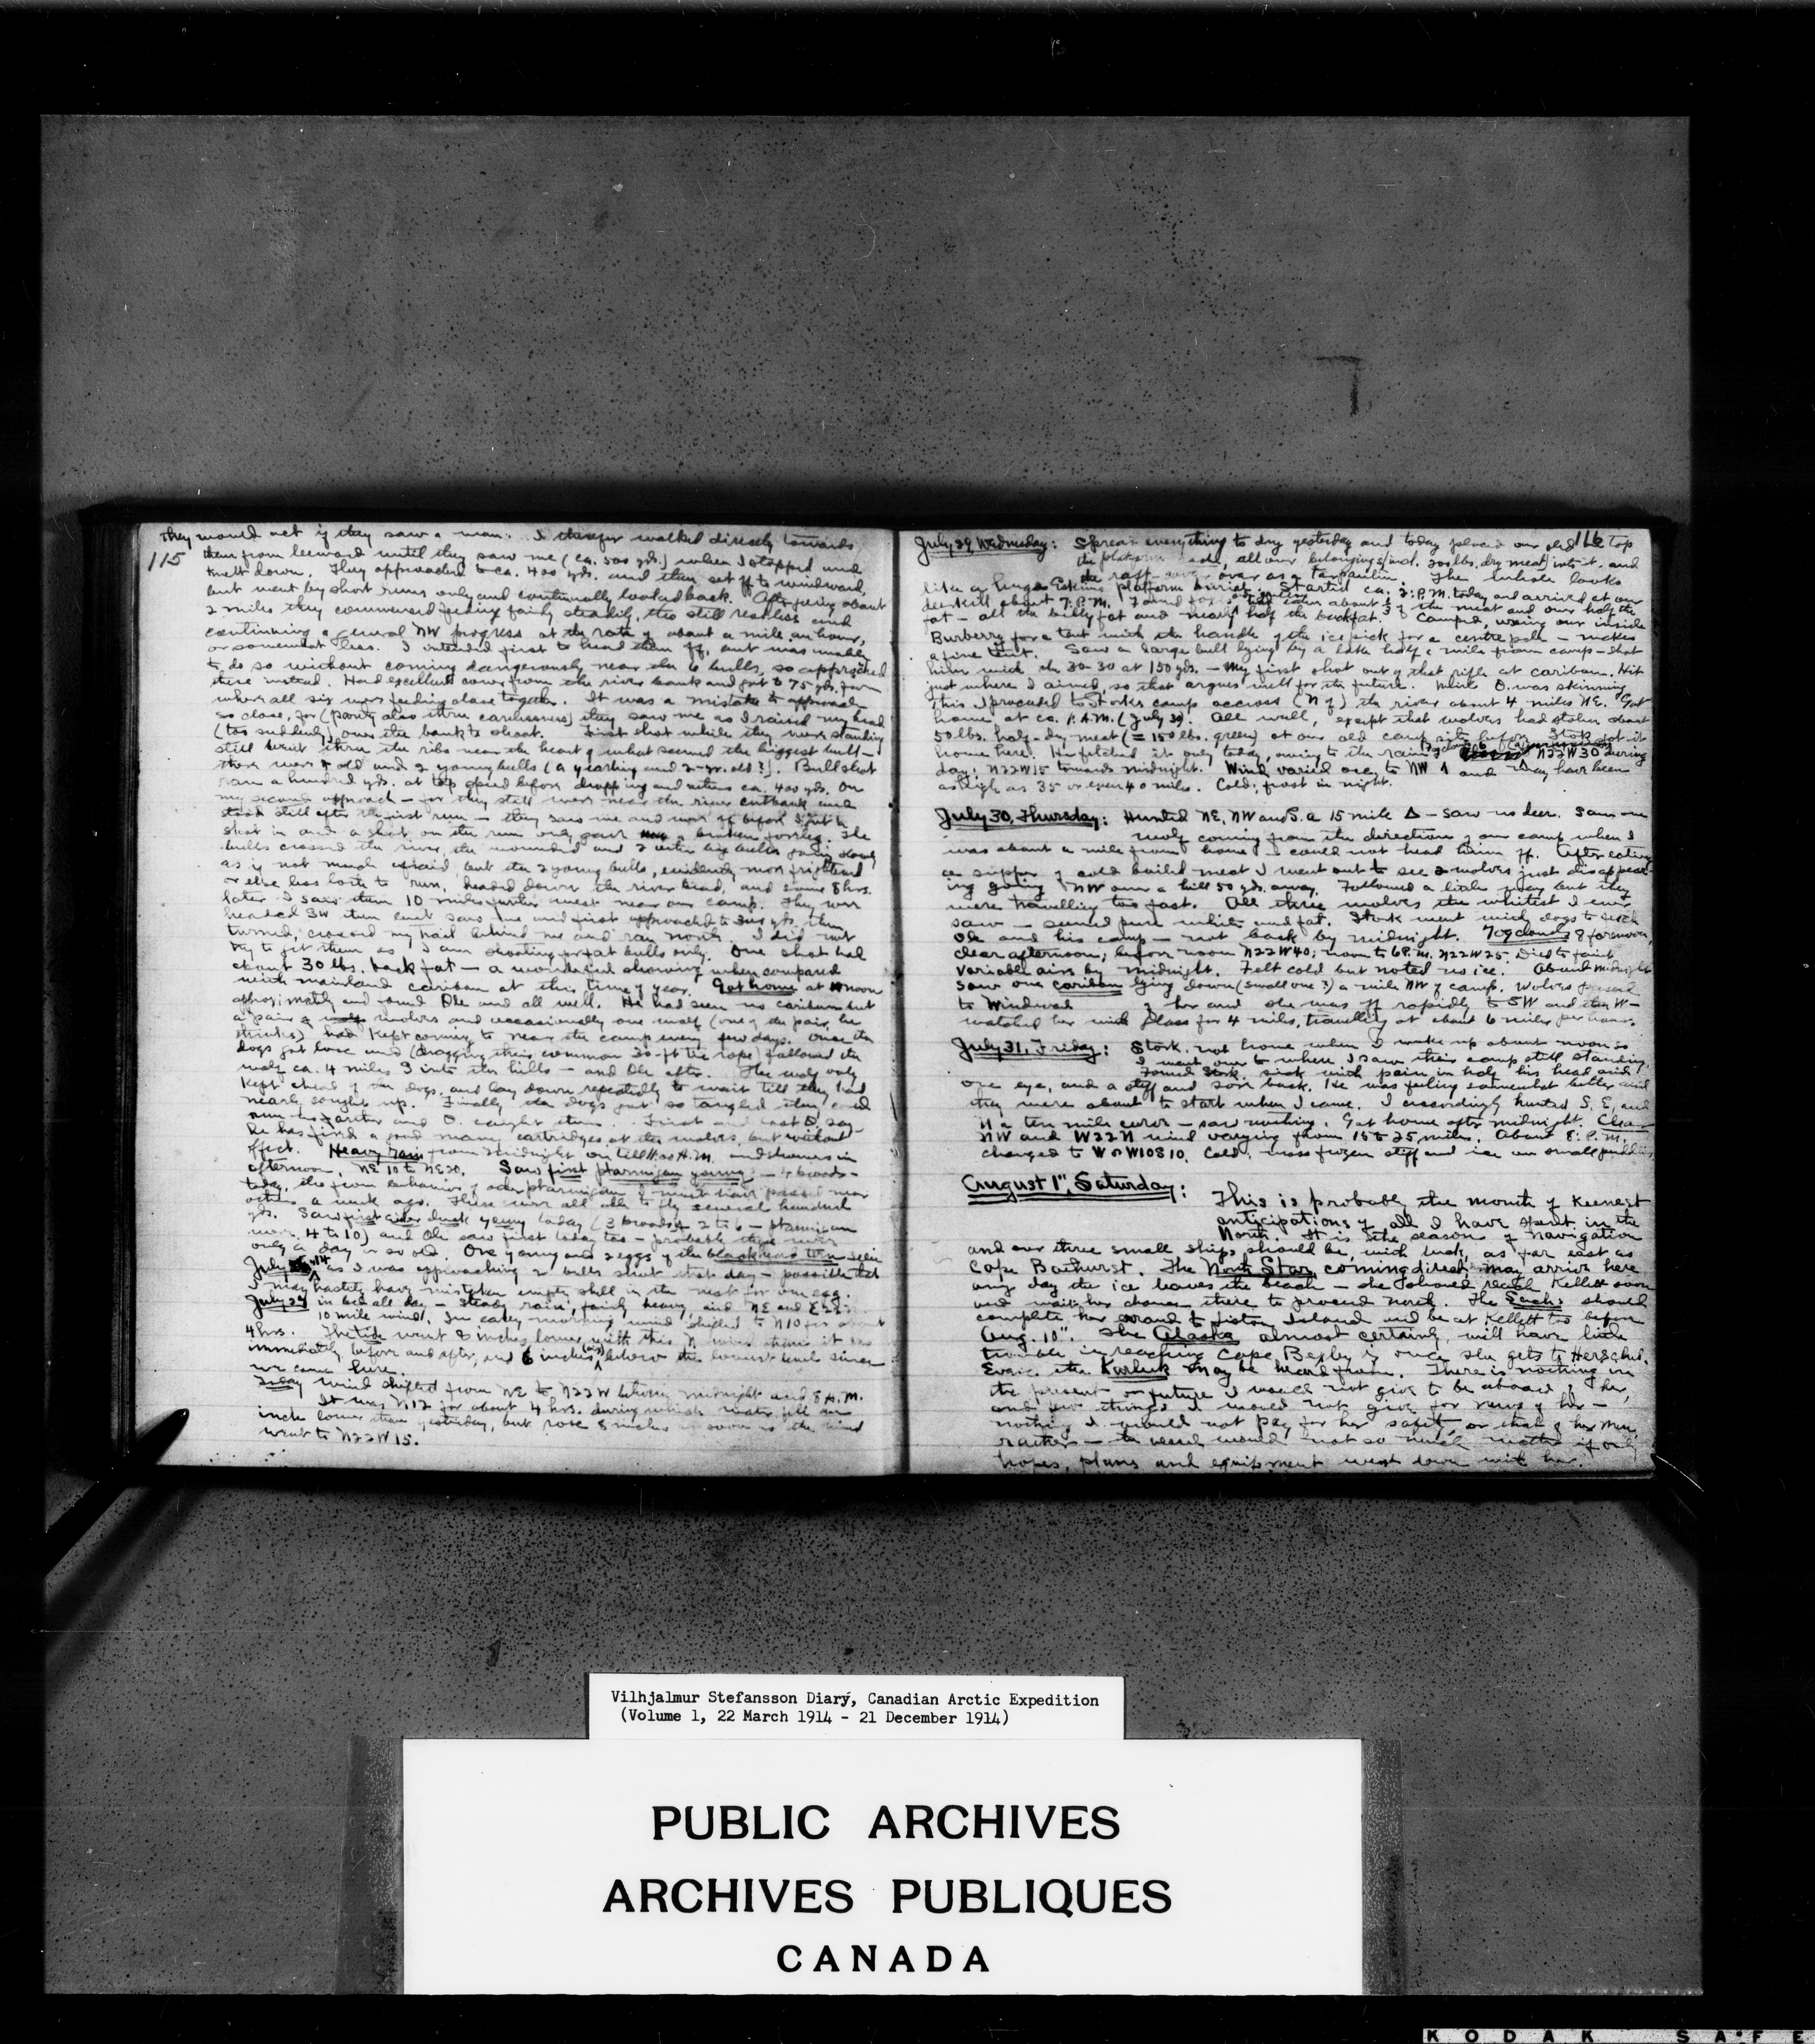 115
they would act if they saw a man. I therefor walked directly towards
them from leeward until they saw me (ca. 500 yds.) when I stopped and
knelt down. They approached to ca. 400 yds. and then set off to windward,
but went by short runs only and continually looked back. After going about
2 miles they commenced feeding fairly steadily, tho still restless and
continuing a general NW progress at the rate of about a mile an hour,
or somewhat less. I intended first to head them off, but was unable
to do so without coming dangerously near the 6 bulls, so approached
these instead. Had excellent cover from the river bank and got to 75 yds. from
where all six were feeding close together. It was a mistake to approach
so close, for (partly also thru carelessness) they saw me as I raised my head
(too suddenly) over the bank to shoot. First shot while they were standing
still went thru the ribs near the heart of what seemed the biggest bull -
there were 4 old and 2 young bulls (a yearling and 2-yr. old?). Bull shot
ran a hundred yds. at top speed before dropping and others ca. 400 yds. On
my second approach - for they still were near the river cutbank and
stood still after the first run - they saw me and were off before I got a
shot in and a shot on the run only gave a broken foreleg. The
bulls crossed the river, the wounded and 2 other big bulls going slowly
as if not much afraid, but the 2 young bulls, evidently more frightened
or else less loath to run, headed down the river bed, and some 8 hrs.
later I saw them 10 miles further west near our camp. They were
headed SW then but saw me and first approached to 300 yds. then
turned, crossed my trail behind me and ran north. I did not
try to get them as I am shooting for fat bulls only. One shot had
about 30 lbs. back fat - a wonderful showing when compared
with mainland caribou at this time of year. Got home at noon
approximately and found Ole and all well. He had seen no caribou but
a pair of wolves and occasionally one wolf (one of the pair, he
thinks) had kept coming to near the camp every few days. Once the
dogs got loose and (dragging their common 30-ft tie rope) followed the
wolf ca. 4 miles into the hills - and Ole after. The wolf only
kept ahead of the dogs, and lay down repeatedly to wait till they had
nearly caught up. Finally the dogs got so tangled they could
run no farther and O. caught them. First and last O. say
he has fired a good many cartridges at the wolves, but without
effect. Heavy rain from midnight on till A.M. and showers in
afternoon. NE 10 to NE 20. Saw first ptarmigan young - 4 broods -
today, tho from behavior of other ptarmigan I must have passed near
others a week ago. These were all able to fly several hundred
yds. Saw first eider duck young today (3 broods of 2 to 6 - ptarmigan
were 4 to 10) and Ole saw first today too - probably they were
only a day or so old. One young and 2 eggs of the black head tern seen
July as I was approaching 2 bulls shot that day - possible that
I may hastily have mistaken empty shell in the nest for one egg.
July 28 in bed all day - steady rain, fairly heavy, and NE and
10 mile wind. In early morning wind shifted to N10 for about
4 hrs. The tide went 8 inches lower with this N wind than it was
immediately before and after, and 6 inches below the lowest level since
we came here.
Today wind shifted from NE to N22W between midnight and 8 A.M.
It was N12 for about 4 hrs. during which water fell an
inch lower than yesterday, but rose 8 inches as soon as the wind
went to N22W15.
116
July 29, Wednesday: Spread everything to dry yesterday and today placed our sled on top
the platform made, all our belongings (incl. 200 lbs. dry meat) into it, and
the raft cover over as a tarpaulin. The whole looks
like a huge Eskimo platform burial. Started ca. 2: P.M. today and arrived at our
deer kill about 7: P.M. Found foxes had eaten about of the meat and our half the
fat - all the belly fat and nearly half the backfat. Camped, using our inside
Burberry for a tent with the handle of the ice pick for a centre pole - makes
a fine tent. Saw a large bull lying by a lake half a mile from camp - shot
him with the 30-30 at 150 yds. - my first shot out of that rifle at caribou. Hit
just where I aimed, so that argues well for the future. While O. was skinning
this I proceeded to Storks camp accross (N of) the river about 4 miles NE. Got
home at ca. 1: A.M. (July 30). All well, except that wolves had stolen about
50 lbs. half-dry meat (= 150 lbs. green) at our old camp site before Stork. got it
home here. He fetched it only today, owing to the rain. N22W30 during
day; N22W15 towards midnight. Wind varied occ. to NW and may have been
as high as 35 or even 40 miles. Cold; frost in night.
July 30, Thursday: Hunted NE, NW and S. a 15 mile Δ - saw no deer. Saw one
wolf coming from the direction of our camp when I
was about a mile from home - could not head him off. After eating
a supper of cold boiled meat I went out to see 2 wolves just disappear-
ing going NW over a hill 50 yds. away. Followed a little way but they
were travelling too fast. All three wolves the whitest I ever
saw - seemed pure white and fat. Stork went with dogs to fetch
Ole and his camp - not back by midnight. Fog clouds 8 forenoon,
clear afternoon; before noon N22W40; noon to 6 P.M. N22W25. Died to faint
variable airs by midnight. Felt cold but noted no ice. About midnight
saw one caribou lying down (small one?) a mile NW of camp. Wolves passed
to windward of her and she was off rapidly to SW and then W -
watched her with glass for 4 miles, travelling at about 6 miles per hour.
July 31, Friday: Stork. not home when I woke up about noon so
I went over to where I saw their camp still standing.
Found Stork. sick with pain in half his head and
one eye, and a stiff and sore back. He was feeling somewhat better and
they were about to start when I came. I accordingly hunted S, E, and
N a ten mile curve - saw nothing. Got home after midnight. Clear
NW and W22N wind varying from 15 to 25 miles. About 8: P.M.
changed to W or W10S 10. Cold; moss frozen stiff and ice on small puddles.
August 1", Saturday:
This is probably the month of keenest
anticipations of all I have spent in the
North. It is the season of navigation
and our three small ships should be, with luck, as far east as
Cape Bathurst. The North Star, coming direct, may arrive here
any day the ice leaves the beach - she should reach Kellett soon
and wait her chance there to proceed north. The Sachs should
complete her errand to Island and be at Kellett too before
Aug. 10". The Alaska almost certainly will have little
trouble in reaching Cape Bexley if once she gets to Herschel.
Even the Karluk may be heard from. There is nothing in
the present or future I would not give to be aboard of her,
and few things I would not give for news of her -
nothing I would not pay for her safety, or that of her men,
rather - the vessel would not so much matter if only
hopes, plans and equipment went down with her.
Vilhjalmur Stefansson Diary, Canadian Arctic Expedition
(Volume 1, 22 March 1914 - 21 December 1914)
PUBLIC ARCHIVES
ARCHIVES PUBLIQUES
CANADA
KODAK SAFE